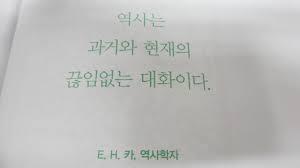 역사는
과거와 현재의
끊임없는 대화이다.
E. H. 카, 역사학자